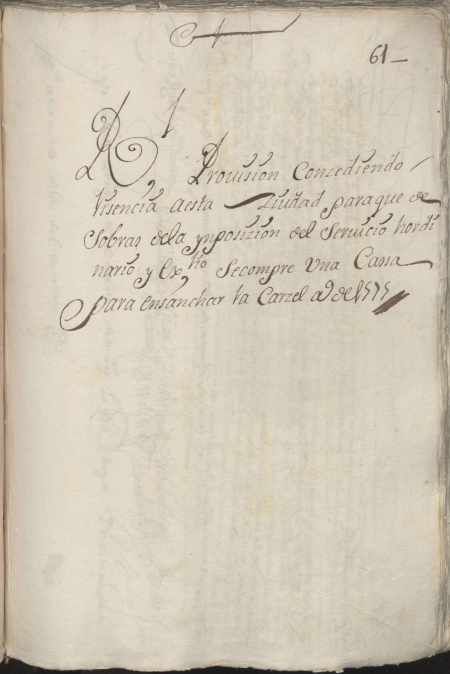 61
Rl Provision Concediendo
lisencia aesta Ziudad paraque de
Sobras dela ynposizion del Servicio hordi
nario, y Exttto Secompre Una Cassa
para ensanchar la Carzel aº de 1575